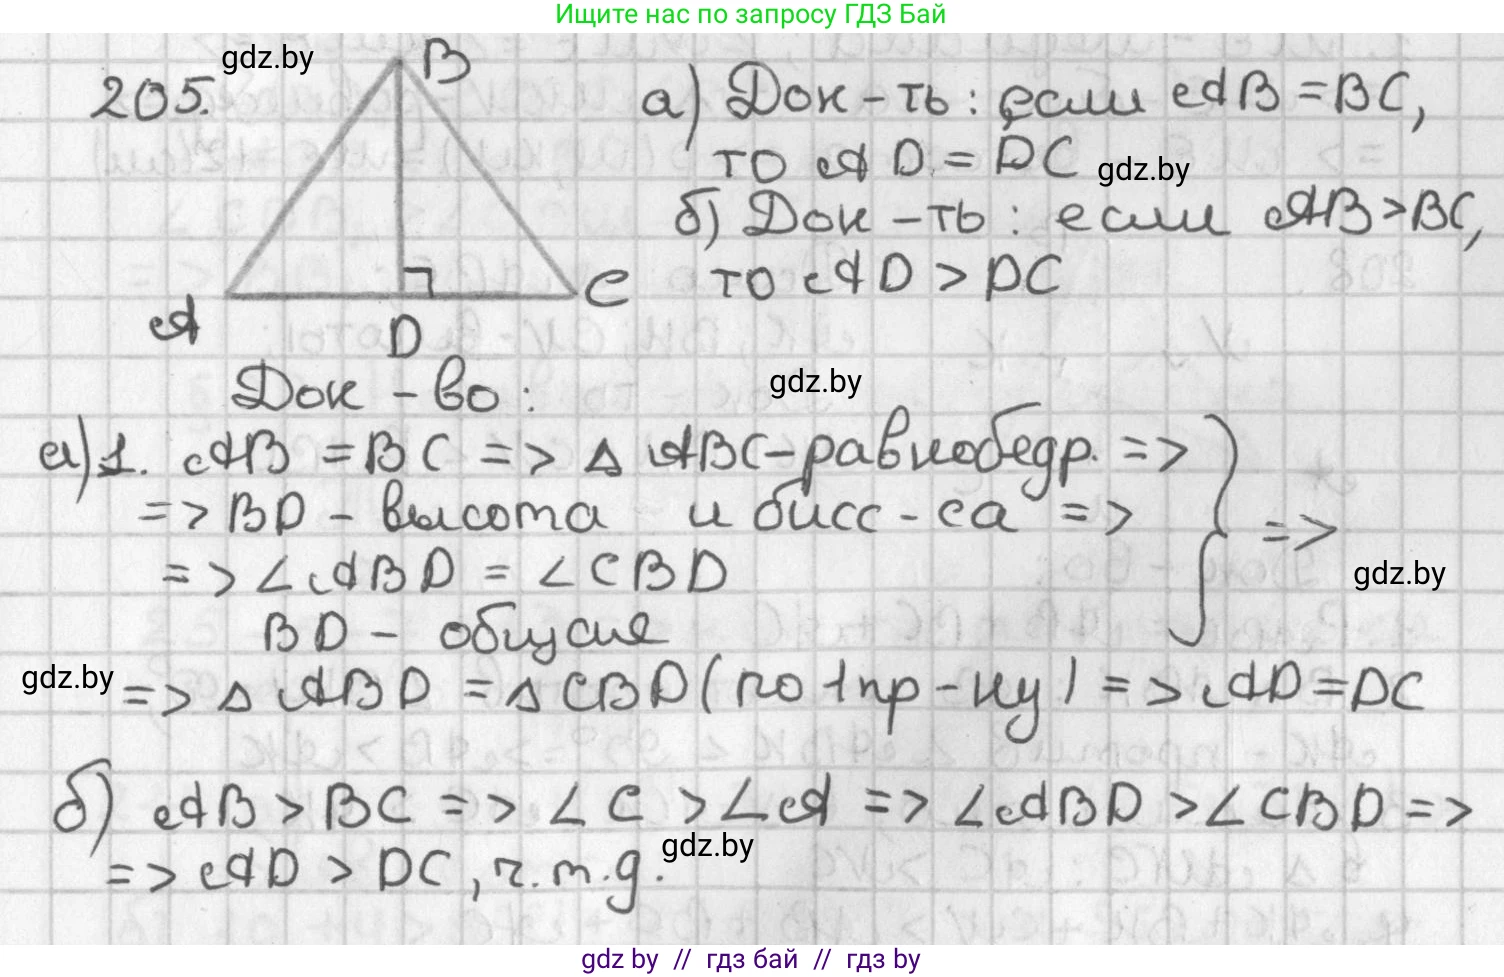 Ищите нас по запросу ГДЗ Бай
205.
gdz.by
B
A
D
C
а) Док-ть: если AB = BC,
то AD = DC
gdz.by
б) Док-ть: если AB > BC,
то AD > DC
Док-во:
gdz.by
а) 1. AB = BC => △ ABC - равнобедр. =>
=> BD - высота и бисс-са =>
=> ∠ABD = ∠CBD
=>
gdz.by
BD - общая
gdz.by
=> △ ABD = △ CBD (по 1 пр-ку) => AD = DC
б) AB > BC => ∠C > ∠A => ∠ABD > ∠CBD =>
gdz.by
=> AD > DC, ч.т.д.
gdz.by // гдз бай // гдз by